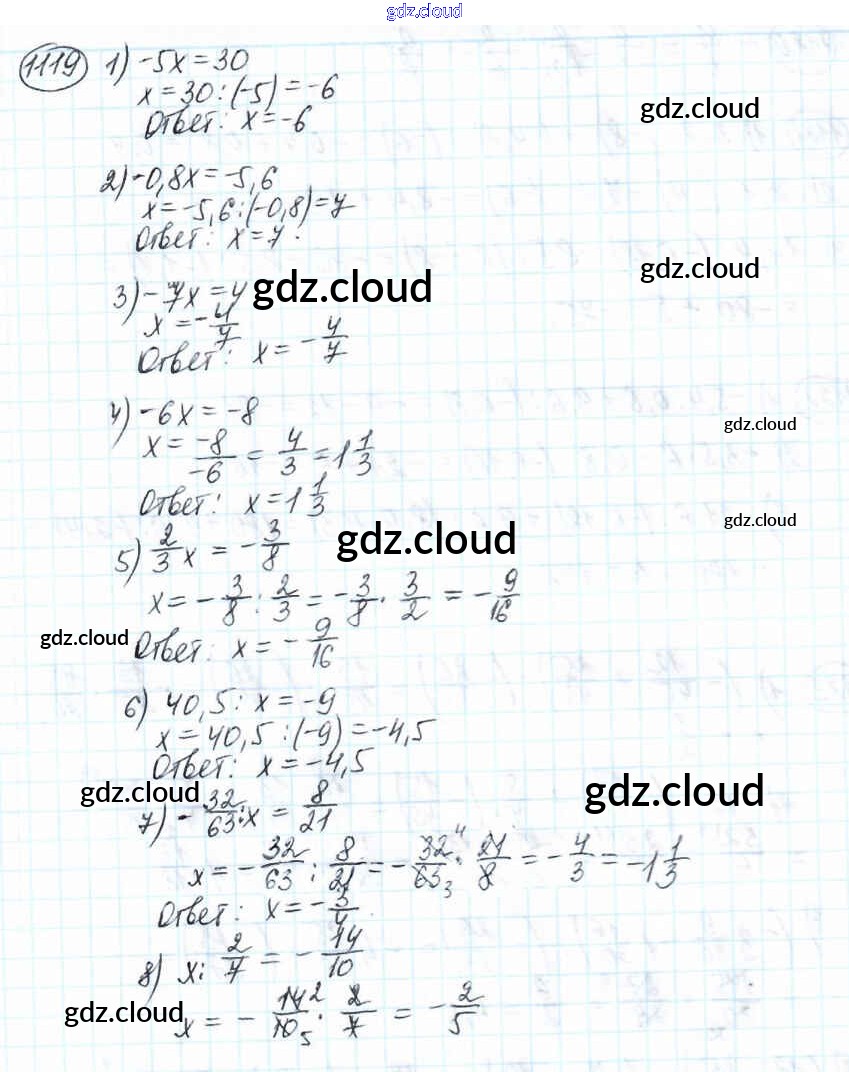 gdz.cloud
1119 1) -5x = 30
x = 30 : (-5) = -6
Ответ: x = -6
gdz.cloud
2) -0,8x = -5,6
x = -5,6 : (-0,8) = 7
Ответ: x = 7.
gdz.cloud
3) -7x = 4
gdz.cloud
x = -4/7
Ответ: x = -4/7
4) -6x = -8
gdz.cloud
x = -8/-6 = 4/3 = 1 1/3
Ответ: x = 1 1/3
gdz.cloud
5) 2/3 x = -3/8
gdz.cloud
x = -3/8 : 2/3 = -3/8 · 3/2 = -9/16
gdz.cloud
Ответ: x = -9/16
6) 40,5 : x = -9
x = 40,5 : (-9) = -4,5
Ответ: x = -4,5
gdz.cloud
gdz.cloud
7) -32/63 : x = 8/21
x = -32/63 : 8/21 = -32 4/63 3 · 21/8 = -4/3 = -1 1/3
Ответ: x = -3/4
8) x : 2/7 = -14/10
gdz.cloud
x = -14 2/10 5 · 2/7 = -2/5